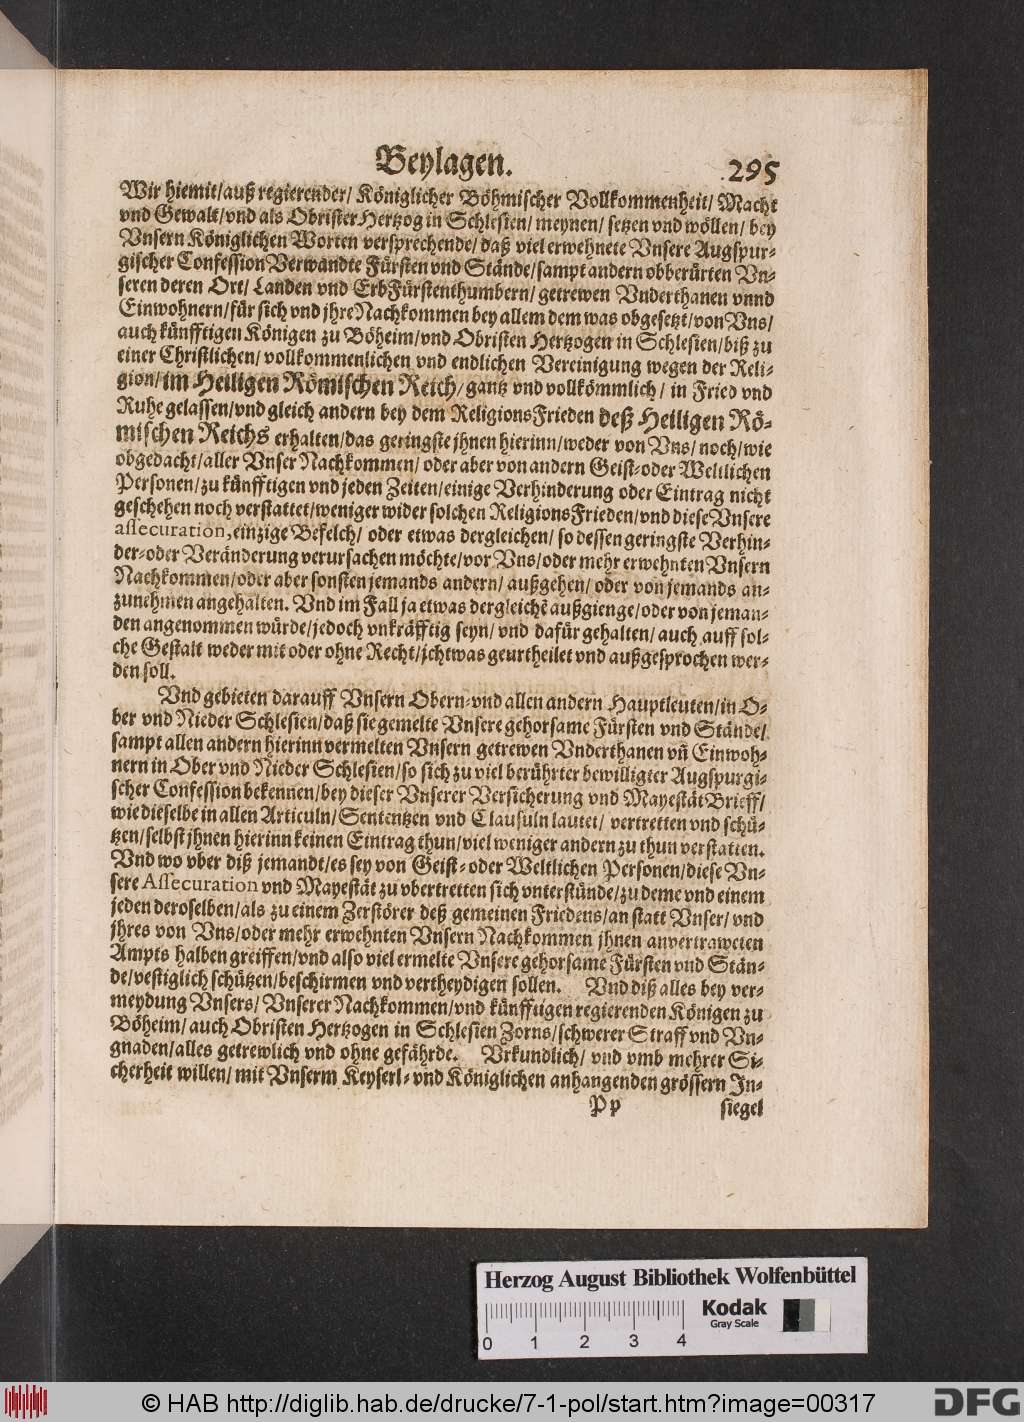 Beylagen. 295
Wir hiemit/auß regierender/ Königlicher Böhmischer Vollkommenheit/ Macht
vnd Gewalt/vnd als Obrister Hertzog in Schlesien/ meynen/ setzen vnd wöllen/ bey
Vnsern Königlichen Worten versprechende/ daß viel erwehnete Vnsere Augspur-
gischer Confession Verwandte Fürsten vnd Stände/sampt andern obberürten Vn-
seren deren Ort/ Landen vnd ErbFürstenthumbern/ getrewen Vnderthanen vnnd
Einwohnern/für sich vnd jhre Nachkommen bey allem dem was obgesetzt/von Vns/
auch künfftigen Königen zu Böheim/vnd Obristen Hertzogen in Schlesien/biß zu
einer Christlichen/ vollkommenlichen vnd endlichen Vereinigung wegen der Reli-
gion/im Heiligen Römischen Reich/gantz vnd vollkömmlich/ in Fried vnd
Ruhe gelassen/vnd gleich andern bey dem ReligionsFrieden deß Heiligen Rö-
mischen Reichs erhalten/das geringste jhnen hierinn/weder von Vns/ noch/wie
obgedacht/aller Vnser Nachkommen/ oder aber von andern Geist-oder Weltlichen
Personen/zu künfftigen vnd jeden Zeiten/einige Verhinderung oder Eintrag nicht
geschehen noch verstattet/weniger wider solchen ReligionsFrieden/vnd diese Vnsere
assecuration, einzige Befelch/ oder etwas dergleichen/ so dessen geringste Verhin-
der-oder Veränderung verursachen möchte/vor Vns/oder mehr erwehnten Vnsern
Nachkommen/oder aber sonsten jemands andern/ außgehen/ oder von jemands an-
zunehmen angehalten. Vnd im Fall ja etwas dergleichē außgienge/oder von jeman-
den angenommen würde/jedoch vnkräfftig seyn/ vnd dafür gehalten/ auch auff sol-
che Gestalt weder mit oder ohne Recht/jchtwas geurtheilet vnd außgesprochen wer-
den soll.
Vnd gebieten darauff Vnsern Obern-vnd allen andern Hauptleuten/in O-
ber vnd Nieder Schlesien/daß sie gemelte Vnsere gehorsame Fürsten vnd Stände/
sampt allen andern hierinn vermelten Vnsern getrewen Vnderthanen vn̄ Einwoh-
nern in Ober vnd Nieder Schlesien/so sich zu viel berührter bewilligter Augspurgi-
scher Confession bekennen/bey dieser Vnserer Versicherung vnd Mayestät Brieff/
wie dieselbe in allen Articuln/Sententzen vnd Clausuln lautet/ vertretten vnd schü-
tzen/selbst jhnen hierinn keinen Eintrag thun/viel weniger andern zu thun verstatten.
Vnd wo vber diß jemandt/es sey von Geist-oder Weltlichen Personen/diese Vn-
sere Assecuration vnd Mayestät zu vbertretten sich vnterstünde/zu deme vnd einem
jeden deroselben/als zu einem Zerstörer deß gemeinen Friedens/an statt Vnser/ vnd
jhres von Vns/oder mehr erwehnten Vnsern Nachkommen jhnen anvertraweten
Ampts halben greiffen/vnd also viel ermelte Vnsere gehorsame Fürsten vnd Stän-
de/vestiglich schützen/beschirmen vnd vertheydigen sollen. Vnd diß alles bey ver-
meydung Vnsers/ Vnserer Nachkommen/vnd künfftigen regierenden Königen zu
Böheim/ auch Obristen Hertzogen in Schlesien Zorns/schwerer Straff vnd Vn-
gnaden/alles getrewlich vnd ohne gefährde. Vrkundlich/ vnd vmb mehrer Si-
cherheit willen/ mit Vnserm Keyserl-vnd Königlichen anhangenden grössern In-
Pp siegel
Herzog August Bibliothek Wolfenbüttel
0 1 2 3 4
Kodak
Gray Scale
© HAB http://diglib.hab.de/drucke/7-1-pol/start.htm?image=00317
DFG